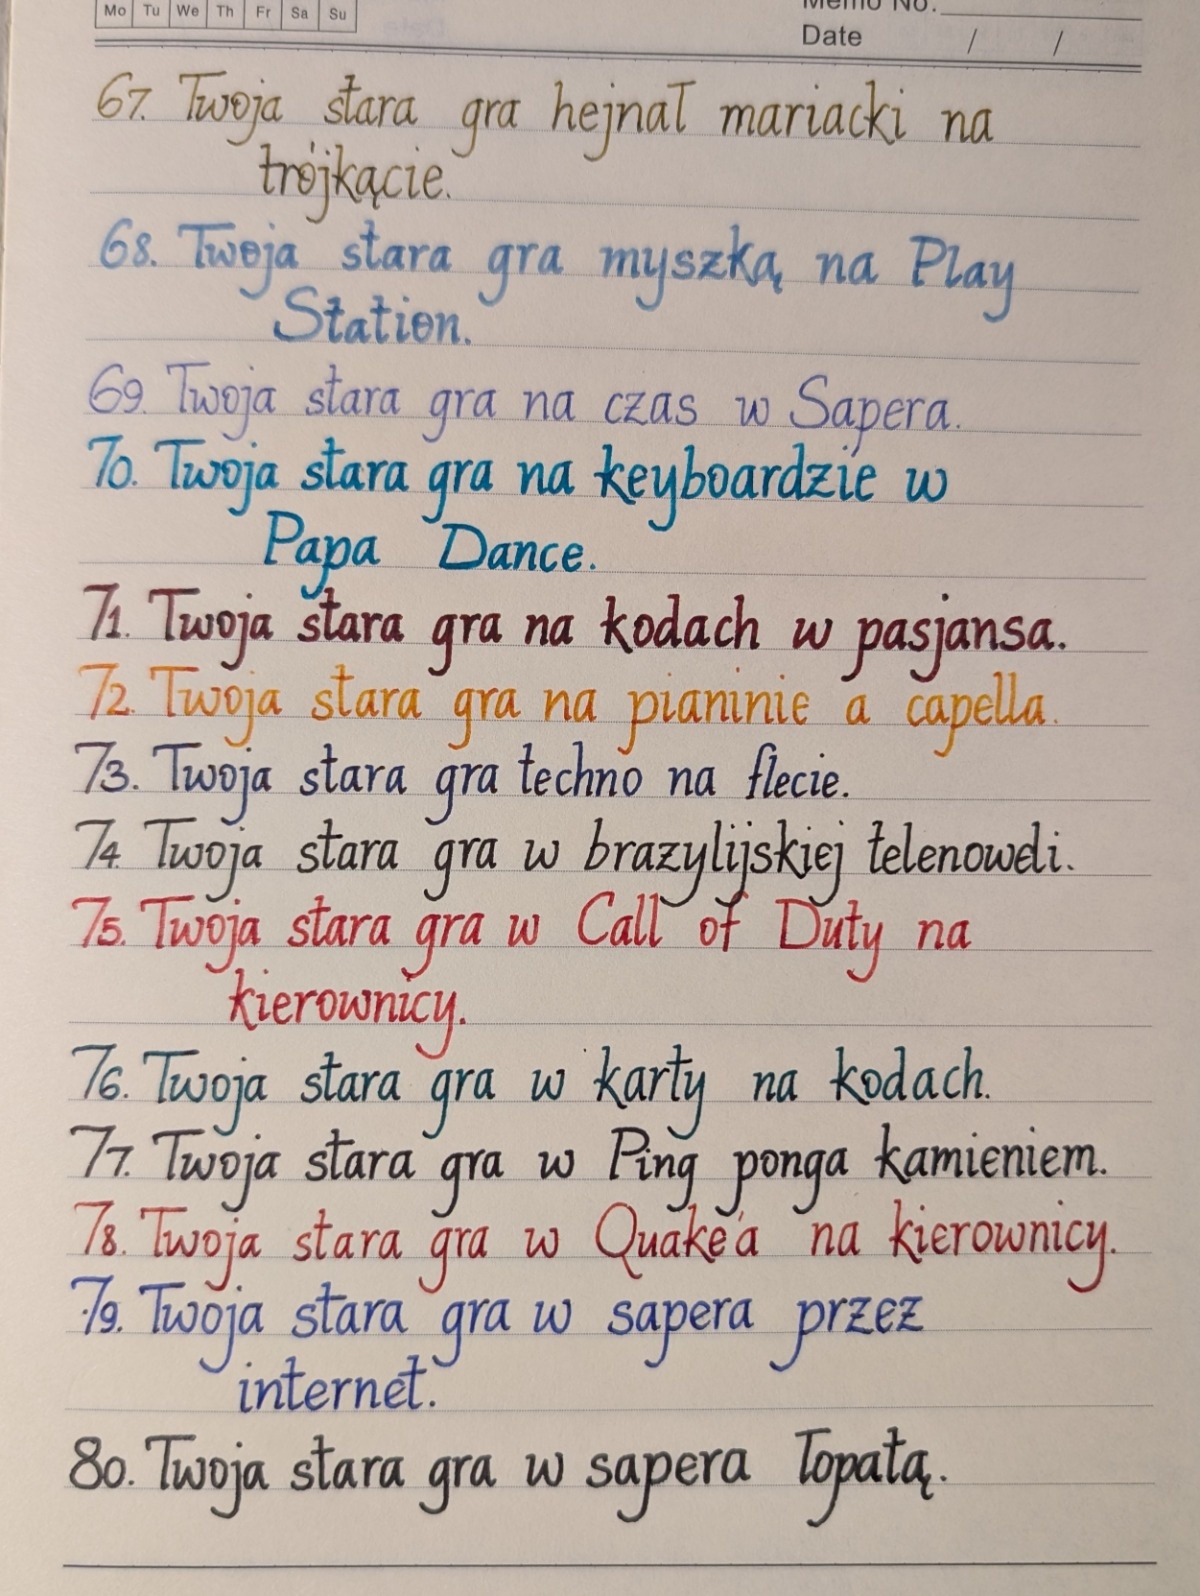 Mo Tu We Th Fr Sa Su
Memo No.
Date / /
67. Twoja stara gra hejnał mariacki na
trójkącie.
68. Twoja stara gra myszką na Play
Station.
69. Twoja stara gra na czas w Sapera.
70. Twoja stara gra na keyboardzie w
Papa Dance.
71. Twoja stara gra na kodach w pasjansa.
72. Twoja stara gra na pianinie a capella.
73. Twoja stara gra techno na flecie.
74. Twoja stara gra w brazylijskiej telenoweli.
75. Twoja stara gra w Call of Duty na
kierownicy.
76. Twoja stara gra w karty na kodach.
77. Twoja stara gra w Ping ponga kamieniem.
78. Twoja stara gra w Quake'a na kierownicy.
79. Twoja stara gra w sapera przez
internet.
80. Twoja stara gra w sapera łopatą.